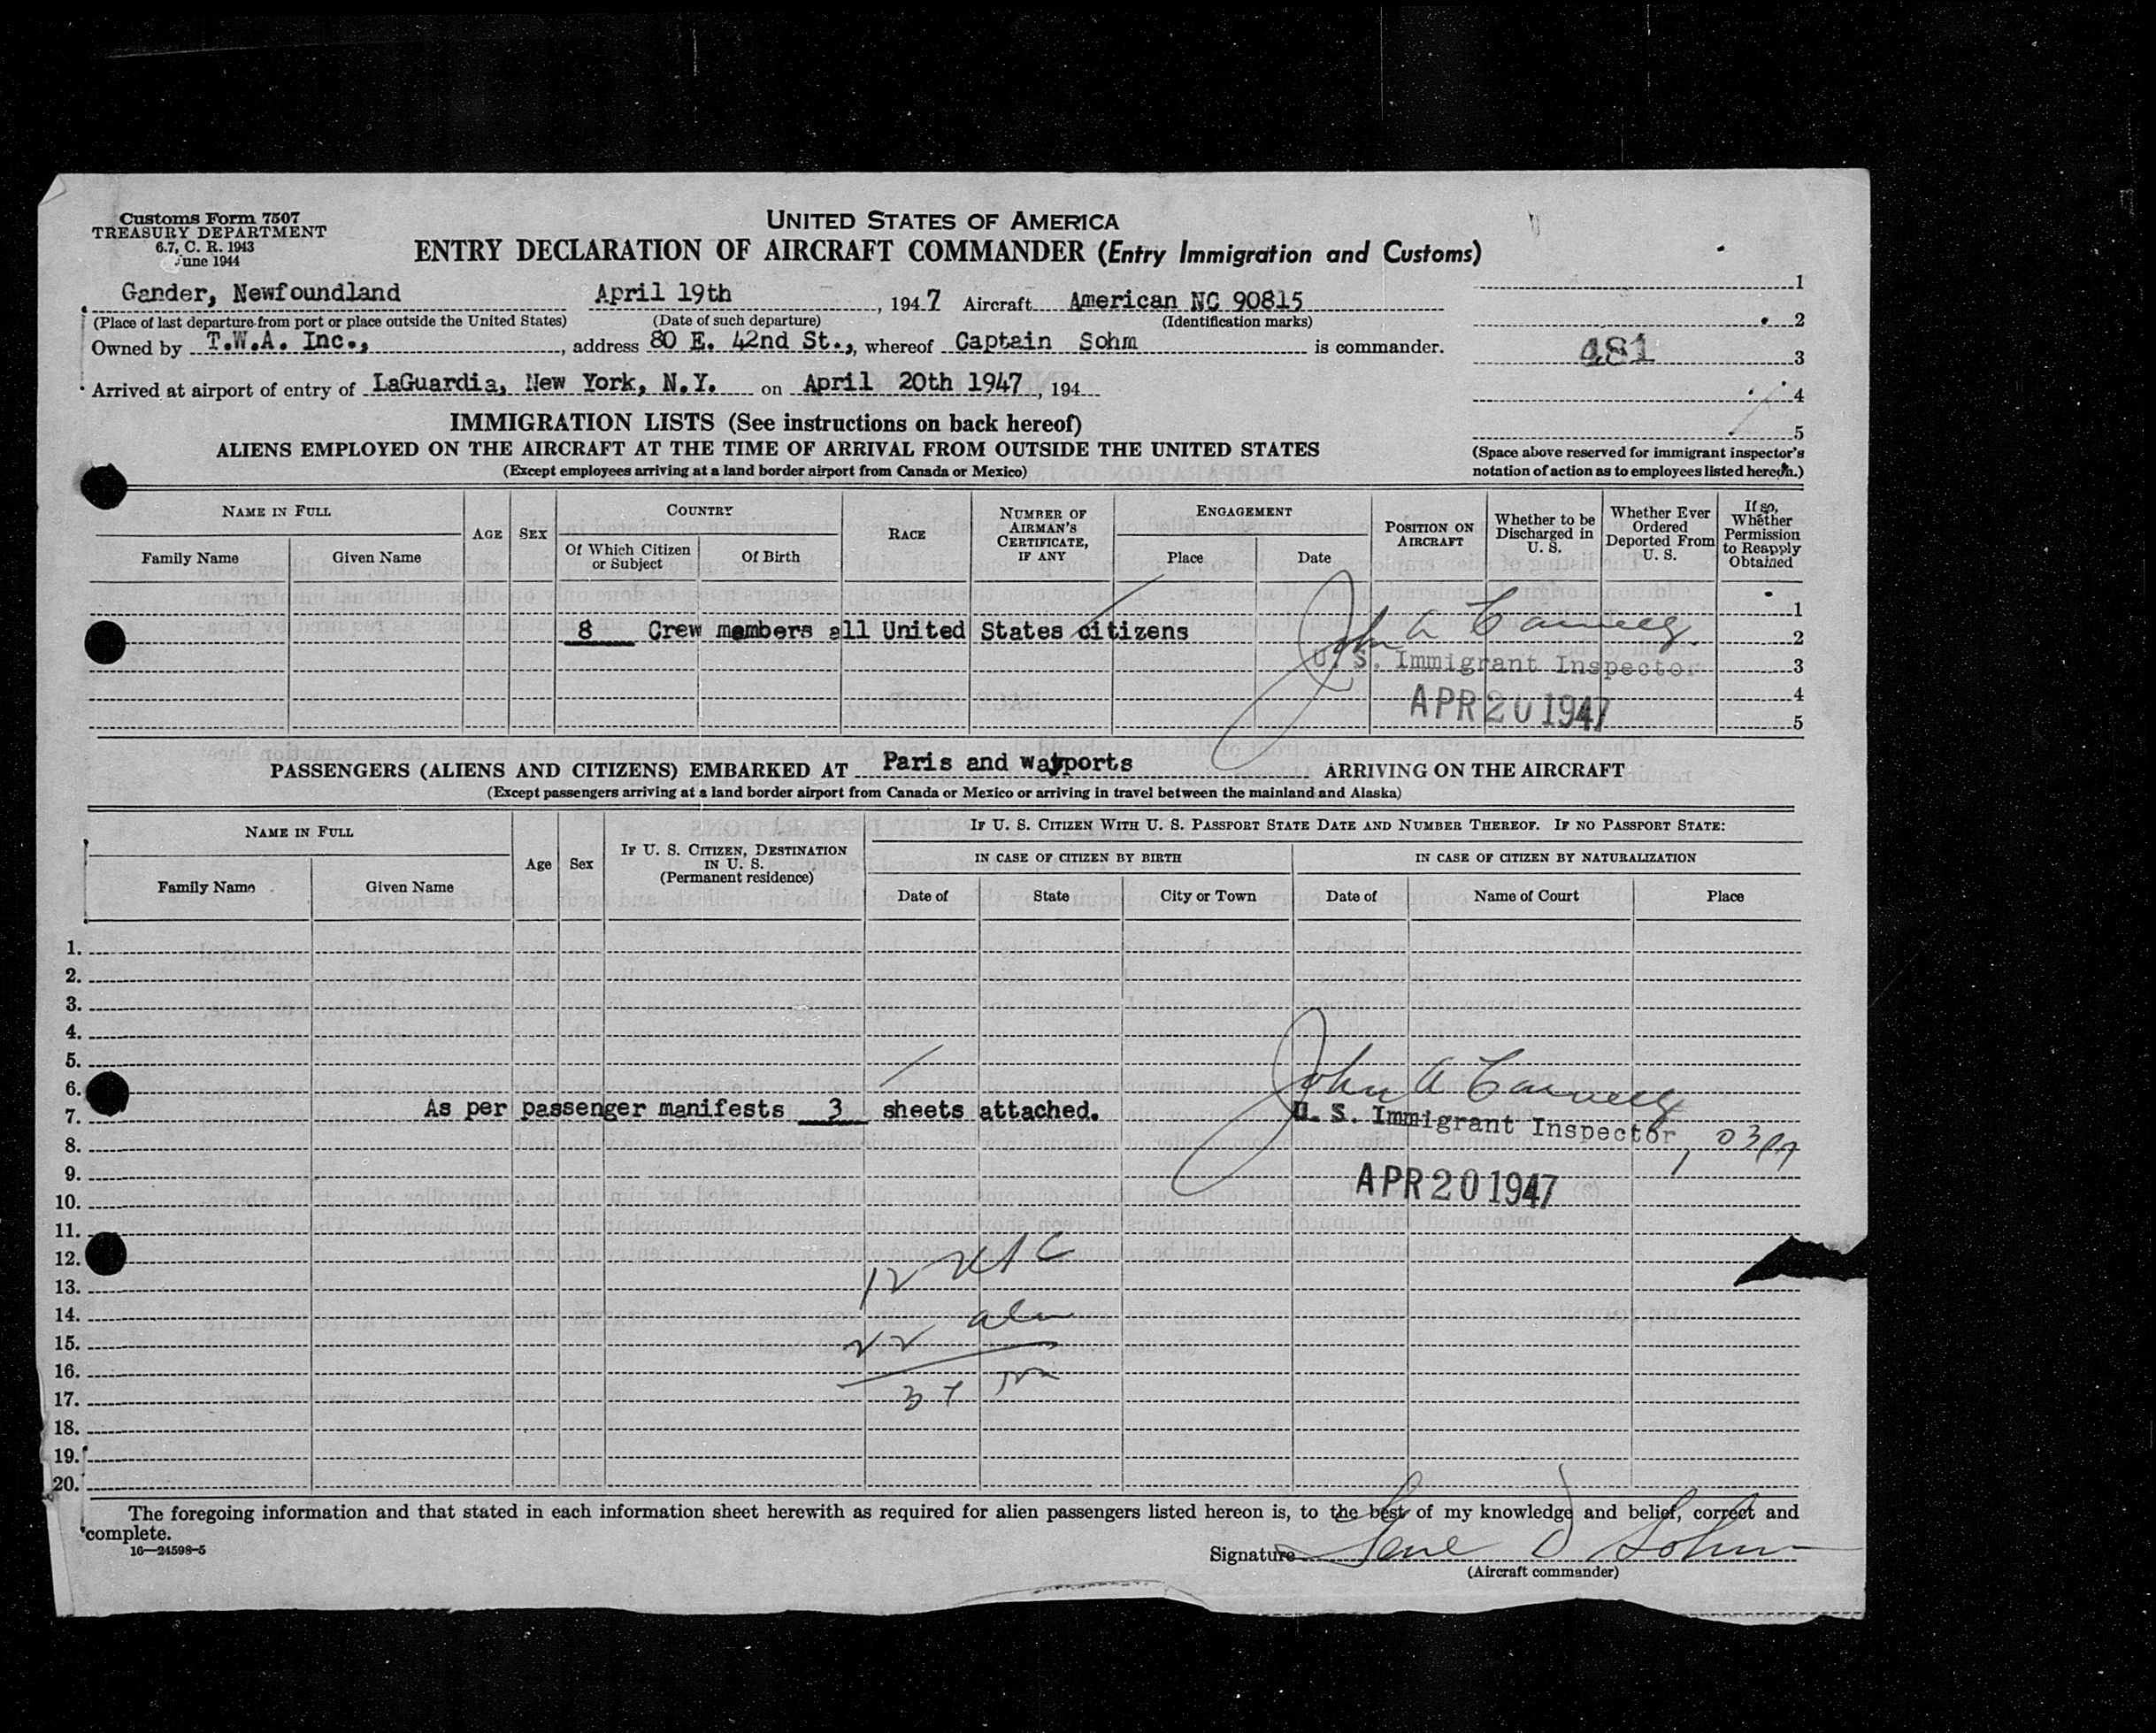 Customs Form 7507
TREASURY DEPARTMENT
6.7, C. R. 1943
June 1944
UNITED STATES OF AMERICA
ENTRY DECLARATION OF AIRCRAFT COMMANDER (Entry Immigration and Customs)
Gander, Newfoundland April 19th, 1947 Aircraft American NC 90815
(Place of last departure from port or place outside the United States) (Date of such departure) (Identification marks)
Owned by T.W.A. Inc., , address 80 E. 42nd St., , whereof Captain Sohm is commander.
Arrived at airport of entry of LaGuardia, New York, N.Y. on April 20th 1947, 194
1
2
481 3
4
5
(Space above reserved for immigrant inspector's
notation of action as to employees listed hereon.)
IMMIGRATION LISTS (See instructions on back hereof)
ALIENS EMPLOYED ON THE AIRCRAFT AT THE TIME OF ARRIVAL FROM OUTSIDE THE UNITED STATES
(Except employees arriving at a land border airport from Canada or Mexico)
NAME IN FULL
Family Name
Given Name
AGE
SEX
COUNTRY
Of Which Citizen
or Subject
Of Birth
RACE
NUMBER OF
AIRMAN'S
CERTIFICATE,
IF ANY
ENGAGEMENT
Place
Date
POSITION ON
AIRCRAFT
Whether to be
Discharged in
U. S.
Whether Ever
Ordered
Deported From
U. S.
If so,
Whether
Permission
to Reapply
Obtained
1
8 Crew members all United States citizens John A 2
U. S. Immigrant Inspector 3
APR 20 1947 4
5
PASSENGERS (ALIENS AND CITIZENS) EMBARKED AT Paris and wayports ARRIVING ON THE AIRCRAFT
(Except passengers arriving at a land border airport from Canada or Mexico or arriving in travel between the mainland and Alaska)
NAME IN FULL
Family Name
Given Name
Age
Sex
IF U. S. CITIZEN, DESTINATION
IN U. S.
(Permanent residence)
IF U. S. CITIZEN WITH U. S. PASSPORT STATE DATE AND NUMBER THEREOF. IF NO PASSPORT STATE:
IN CASE OF CITIZEN BY BIRTH
Date of
State
City or Town
IN CASE OF CITIZEN BY NATURALIZATION
Date of
Name of Court
Place
1.
2.
3.
4.
5.
6. John A
7. As per passenger manifests 3 sheets attached. U. S. Immigrant Inspector
8.
9. APR 20 1947
10.
11.
12. 12 USC
13.
14.
15. 22
16.
17. 34
18.
19.
20.
The foregoing information and that stated in each information sheet herewith as required for alien passengers listed hereon is, to the best of my knowledge and belief, correct and
complete.
16—24598-5
Signature Gene D Sohm
(Aircraft commander)